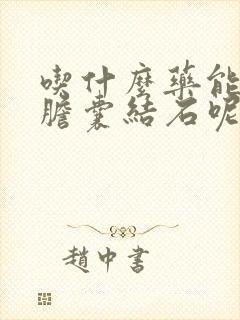 喫什麼藥能
膽囊結石呢
趙中書